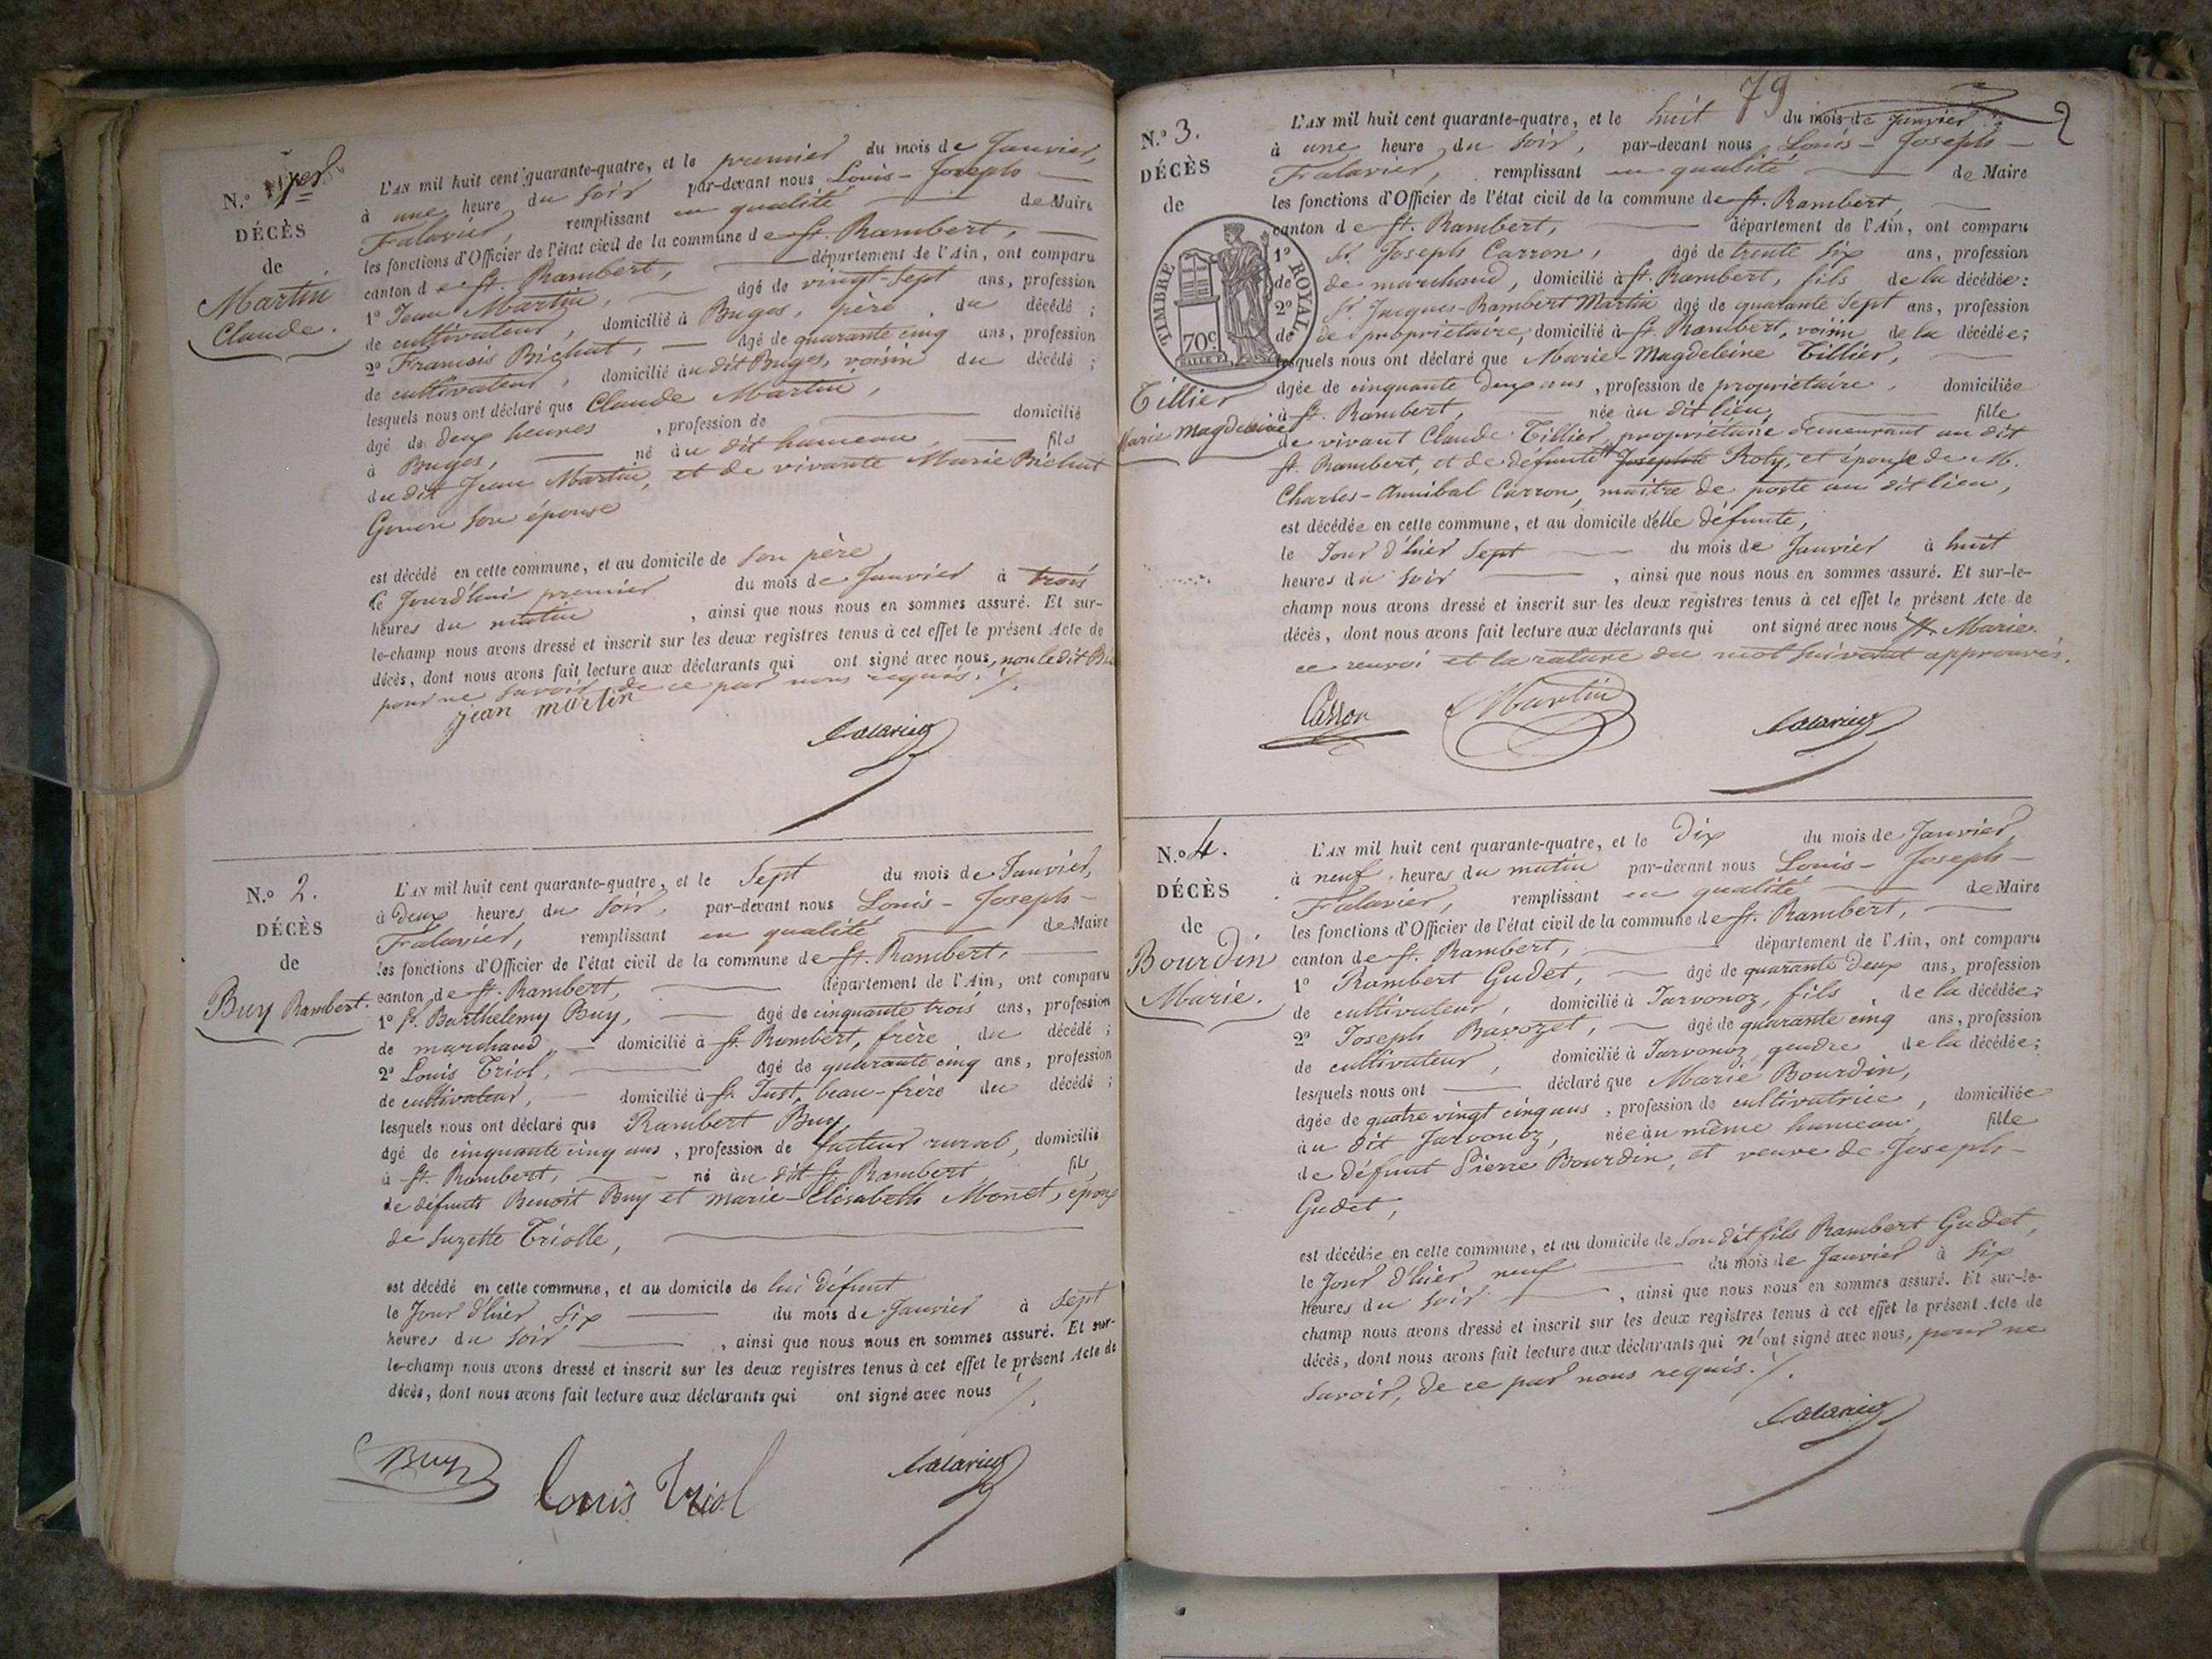 N.o 1er
DÉCÈS
de
Martin
Claude.
L'AN mil huit cent quarante-quatre, et le premier du mois de Janvier,
à une heure du soir par-devant nous Louis-Joseph
Falavier, remplissant en qualité de Maire
les fonctions d'Officier de l'état civil de la commune de St. Rambert,
canton de St. Rambert, département de l'Ain, ont comparu
1o Jean Martin, âgé de vingt-sept ans, profession
de cultivateur, domicilié à Buges, père du décédé ;
2o Francois Bichat, âgé de quarante cinq ans, profession
de cultivateur, domicilié au dit Buges, voisin du décédé ;
lesquels nous ont déclaré que Claude Martin,
âgé de deux heures, profession de domicilié
à Buges, né au dit hameau, fils
du dit Jean Martin, et de vivante Marie Bichat
Gonon son épouse
est décédé en cette commune, et au domicile de son père,
le Jourd'hui premier du mois de Janvier à trois
heures du matin, ainsi que nous nous en sommes assuré. Et sur-
le-champ nous avons dressé et inscrit sur les deux registres tenus à cet effet le présent Acte de
décès, dont nous avons fait lecture aux déclarants qui ont signé avec nous, non le dit
pour ne savoir, de ce par nous requis. /.
jean martin
Falavier
N.o 2.
DÉCÈS
de
Buy Rambert.
L'AN mil huit cent quarante-quatre, et le Sept du mois de Janvier,
à deux heures du soir, par-devant nous Louis-Joseph-
Falavier, remplissant en qualité de Maire
les fonctions d'Officier de l'état civil de la commune de St. Rambert,
canton de St. Rambert, département de l'Ain, ont comparu
1o Sr. Barthelemy Buy, âgé de cinquante trois ans, profession
de marchand, domicilié à St. Rambert, frère du décédé ;
2o Louis Triol, âgé de quarante cinq ans, profession
de cultivateur, domicilié à St. Just, beau-frère du décédé ;
lesquels nous ont déclaré que Rambert Buy
âgé de cinquante cinq ans, profession de facteur rural, domicilié
à St. Rambert, né au dit St. Rambert, fils
de défunts Benoît Buy et marie-Elisabeth Monet, époux
de Suzette Triolle,
est décédé en cette commune, et au domicile de lui défunt
le Jour d'hier Six du mois de Janvier à Sept
heures du soir, ainsi que nous nous en sommes assuré. Et sur-
le-champ nous avons dressé et inscrit sur les deux registres tenus à cet effet le présent Acte de
décès, dont nous avons fait lecture aux déclarants qui ont signé avec nous /.
Buy
Louis Triol
Falavier
79
2
N.o 3.
DÉCÈS
de
TIMBRE ROYAL
70c
Tillier
Marie Magdeleine
L'AN mil huit cent quarante-quatre, et le huit du mois de Janvier
à une heure du soir, par-devant nous Louis-Joseph-
Falavier, remplissant en qualité de Maire
les fonctions d'Officier de l'état civil de la commune de St. Rambert,
canton de St. Rambert, département de l'Ain, ont comparu
1o Sr. Joseph Carron, âgé de trente six ans, profession
de de marchand, domicilié à St. Rambert, fils de la décédée :
2o Sr. Jacques-Rambert Martin âgé de quarante Sept ans, profession
de de propriétaire, domicilié à St. Rambert, voisin de la décédée ;
lesquels nous ont déclaré que Marie-Magdeleine Tillier,
âgée de cinquante deux ans, profession de propriétaire, domiciliée
à St. Rambert, née au dit lieu, fille
de vivant Claude Tillier, propriétaire demeurant au dit
St. Rambert, et de défunte Josephte Roty, et épouse de M.
Charles-Annibal Carron, maître de poste au dit lieu,
est décédée en cette commune, et au domicile d'elle défunte,
le Jour d'hier Sept du mois de Janvier à huit
heures du soir, ainsi que nous nous en sommes assuré. Et sur-le-
champ nous avons dressé et inscrit sur les deux registres tenus à cet effet le présent Acte de
décès, dont nous avons fait lecture aux déclarants qui ont signé avec nous Marie.
ce renvoi et la rature du mot suivant approuvés.
Carron
Martin
Falavier
N.o 4.
DÉCÈS
de
Bourdin
Marie.
L'AN mil huit cent quarante-quatre, et le Dix du mois de Janvier,
à neuf heures du matin par-devant nous Louis-Joseph-
Falavier, remplissant en qualité de Maire
les fonctions d'Officier de l'état civil de la commune de St. Rambert,
canton de St. Rambert, département de l'Ain, ont comparu
1o Rambert Gudet, âgé de quarante deux ans, profession
de cultivateur, domicilié à Jarvonoz, fils de la décédée ;
2o Joseph Bavozet, âgé de quarante cinq ans, profession
de cultivateur, domicilié à Jarvonoz, gendre de la décédée ;
lesquels nous ont déclaré que Marie Bourdin,
âgée de quatre vingt cinq ans, profession de cultivatrice, domiciliée
au dit Jarvonoz, née au même hameau, fille
de défunt Pierre Bourdin, et veuve de Joseph-
Gudet,
est décédée en cette commune, et au domicile de son dit fils Rambert Gudet,
le Jour d'hier neuf du mois de Janvier à Six
heures du soir, ainsi que nous nous en sommes assuré. Et sur-le-
champ nous avons dressé et inscrit sur les deux registres tenus à cet effet le présent Acte de
décès, dont nous avons fait lecture aux déclarants qui n'ont signé avec nous, pour ne
savoir, de ce par nous requis. /.
Falavier